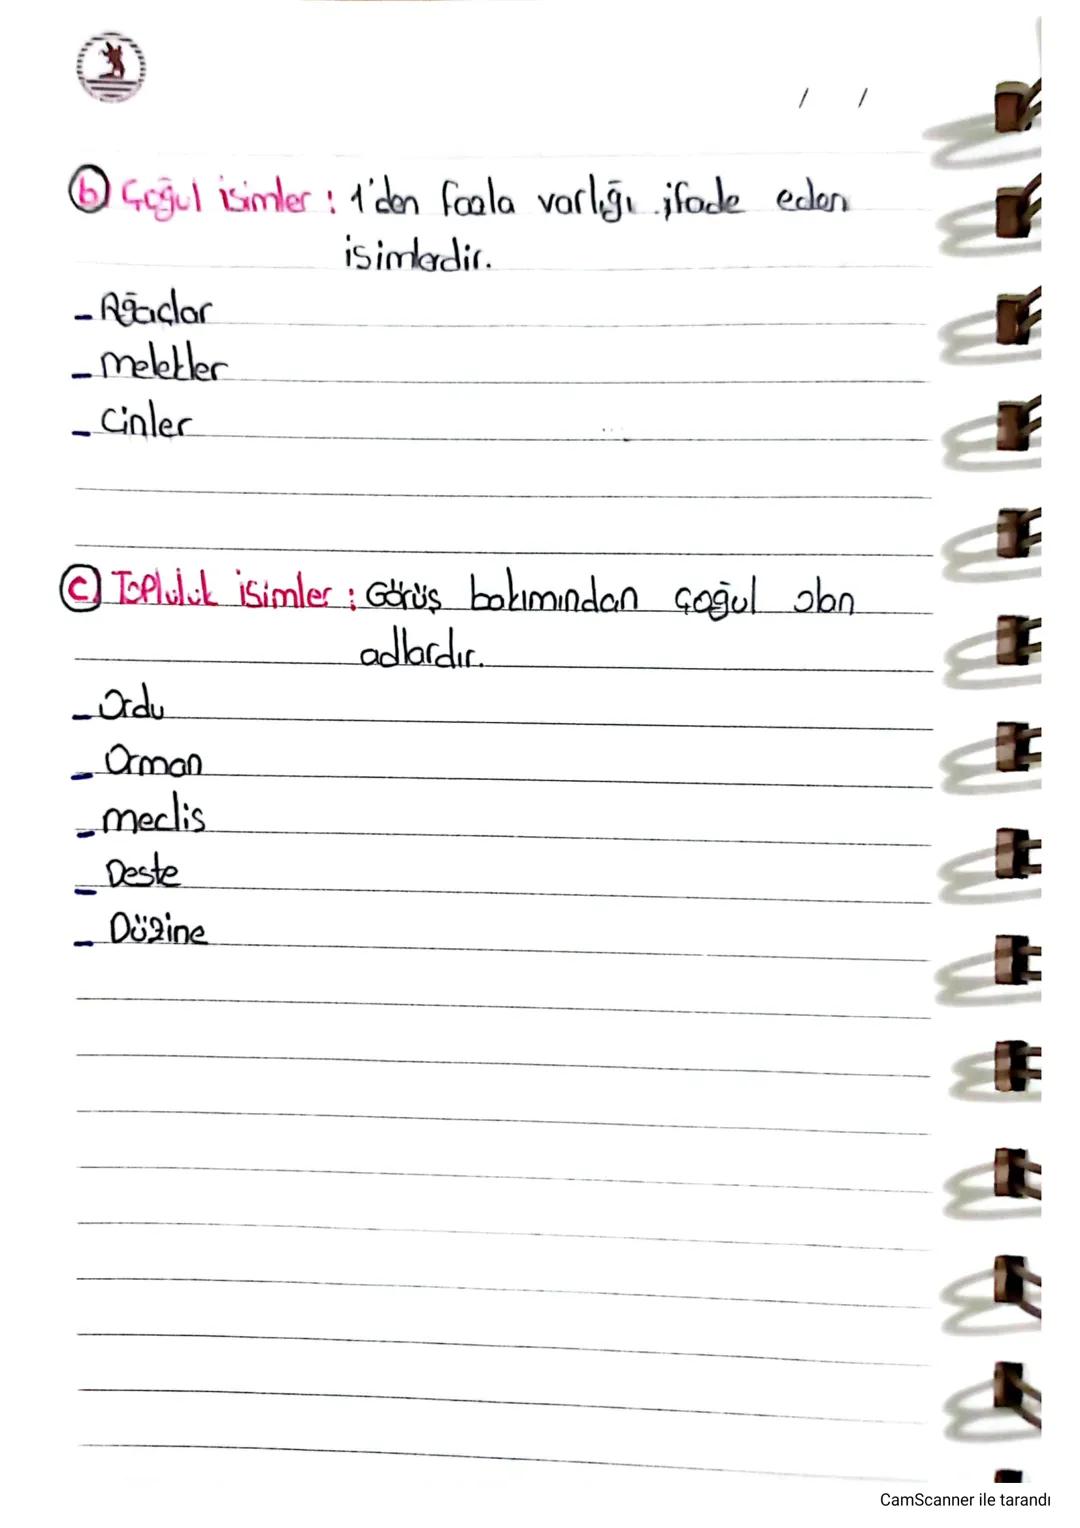 / /
b) Çoğul isimler : 1'den fazla varlığı ifade eden
isimlerdir.
- Ağaçlar
- melekler
- Cinler
c) Topluluk isimler : Görüş bakımından çoğul olan
adlardır.
- Ordu
- Orman
- meclis
- Deste
- Düzine
CamScanner ile tarandı